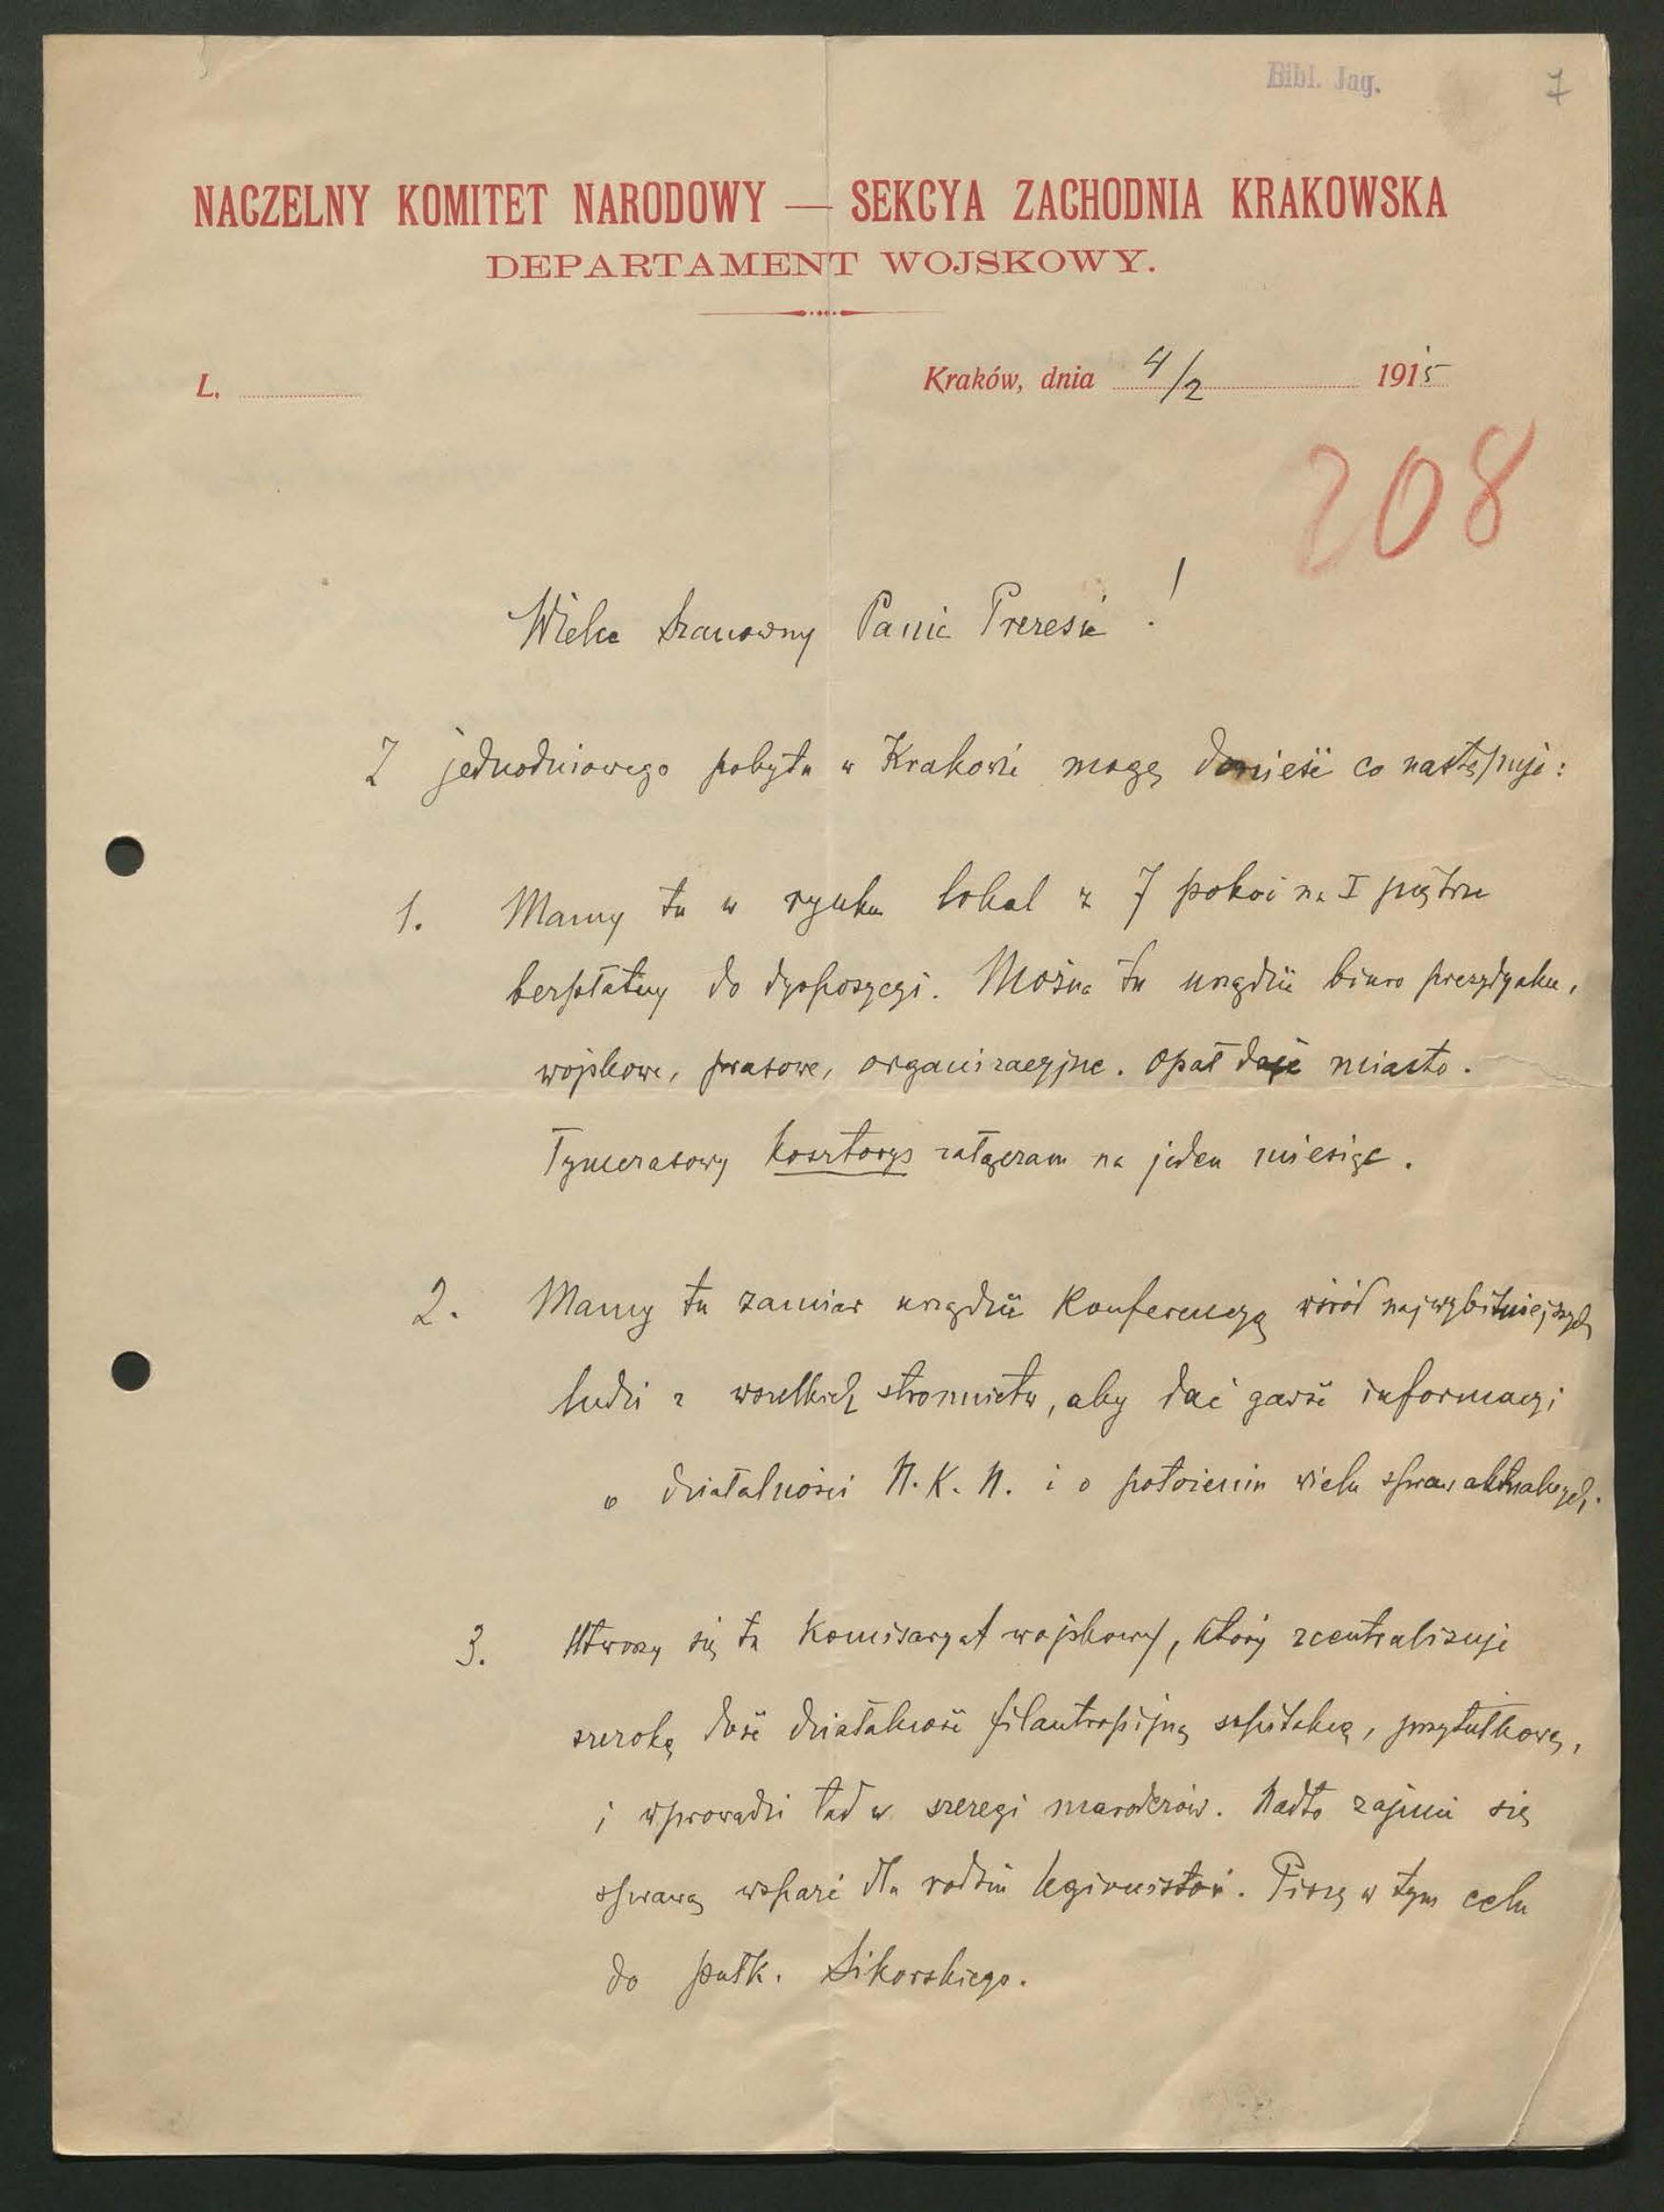 Bibl. Jag.
7
NACZELNY KOMITET NARODOWY — SEKCYA ZACHODNIA KRAKOWSKA
DEPARTAMENT WOJSKOWY.
L.
Kraków, dnia 4/2 1915
208
Wielce Szanowny Panie Prezesie!
Z jednodniowego pobytu w Krakowie mogę donieść co następuje:
1. Mamy tu w rynku lokal z 7 pokoi na I piętrze
bezpłatny do dyspozycyi. Można tu urządzić biuro prezydyalne,
wojskowe, prasowe, organizacyjne. Opał daje miasto.
Tymczasowy kosztorys załączam na jeden miesiąc.
2. Mamy tu zamiar urządzić Konferencyę wśród najwybitniejszych
ludzi z wszelkich stronnictw, aby dać garść informacyi
o działalności N.K.N. i o położeniu wielu spraw aktualnych.
3. Utworzy się tu Komisaryat wojskowy, który zcentralizuje
szeroką dość działalność filantropijną szpitalną, przytułkową,
i wprowadzi ład w szeregi maroderów. Nadto zajmie się
sprawą wsparć dla rodzin legionistów. Piszę w tym celu
do pułk. Sikorskiego.